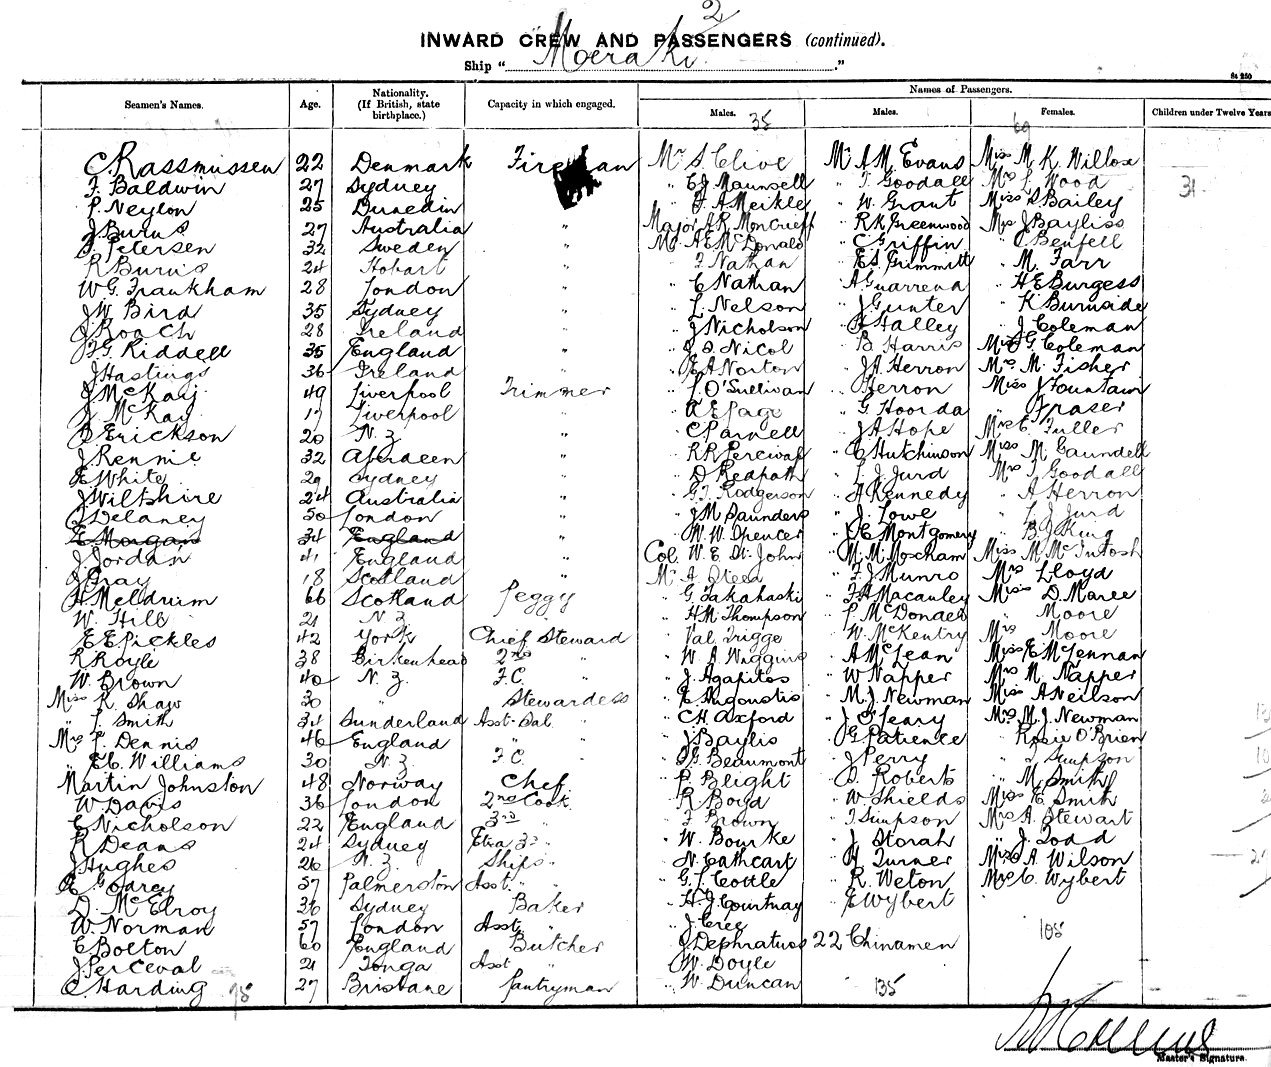 2
INWARD CREW AND PASSENGERS (continued).
Ship " Moeraki ."
Seamen's Names. Age. Nationality. (If British, state birthplace.) Capacity in which engaged. Names of Passengers.
Males. 35 Males. Females. 69 Children under Twelve Years
C. Rassmussen 22 Denmark Fireman Mr S. Clive Mr A M Evans Miss M. K. Willox
F. Baldwin 27 Sydney " C J Maunsell " T. Goodall Mrs L Wood 31
P. Neylon 25 Dunedin " " F A Meikle " W. Grant Miss Bailey
J Burns 27 Australia " Major J. R. Moncrieff " R K Greenwood Mrs J Bayliss
Petersen 32 Sweden " Mr A E McDonald " C Griffin " Benfell
R Burns 24 Hobart " " F Nathan " E S Grimmitt " M. Farr
W G. Frankham 28 London " " C Nathan " A Guarrena " H E Burgess
J W Bird 35 Sydney " " L. Nelson " J Gunter " K Burnside
J Roach 28 Ireland " " J Nicholson " Halley " J. Coleman
F G. Riddell 35 England " " J. S. Nicol " B Harris Miss G Coleman
J Hastings 36 Ireland " " E A Norton " J A Herron Mrs M. Fisher
J McKay 49 Liverpool Trimmer " O'Sullivan " Herron Miss J Fountain
J McKay 17 Liverpool " " A E Page " G Hoorda " Fraser
Erickson 20 N. Z " " C Parnell " J A Hope Mrs C Fuller
J. Rennie 32 Aberdeen " " R R Percival " C Hutchinson Miss M Caundell
E White 29 Sydney " " D Redpath " L J Jurd Mrs T Goodall
J Wiltshire 24 Australia " " G. T. Rodgerson " A Kennedy " A Herron
Delaney 50 London " " J M Saunders " J. Lowe " L J Jurd
E Morgan 34 England " " W W Spencer " E Montgomery " B J King
J Jordan 41 England " Col. W. E. St. John " M. M. Moxham Miss M McIntosh
J Gray 18 Scotland " Mr A Steed " F J Munro Mrs Lloyd
H Melldrum 66 Scotland Peggy " G Takahaski " F A Macauley Miss D. Maree
W. Hill 21 N Z " " H M Thompson " P McDonald " Moore
E E Pickles 42 York Chief Steward " Val Trigge " W. McKentry Mrs Moore
R Royle 38 Birkenhead 2nd " " W A Wiggins " A McLean Miss E McLennan
W. Brown 40 N. Z. F. C. " " J. Agapitos " W Napper Mrs M. Napper
Miss K. Shaw 30 " Stewardess " Augoustis " M. J. Newman Miss A Neilson
" F. Smith 34 Sunderland Asst. Sal. " " C H Axford " J O'Leary Mrs M. J. Newman
Mrs F. Dennis 46 England " " " J Baylis " G Patience " Rosie O'Brien
" E C. Williams 30 N. Z F. C. " " G. Beaumont " J Perry " T Simpson
Martin Johnston 48 Norway Chef " P Blight " D. Roberts " M Smith
W Davis 36 London 2nd Cook " R Boyd " W. Shields Miss E Smith
C Nicholson 22 England 3rd " " F Brown " T Simpson Mrs A. Stewart
R Deans 24 Sydney Extra 3rd " " W. Bourke " J. Storah " J. Todd
J Hughes 26 N. Z Ships " " N. Cathcart " H Turner Miss A Wilson
Godfrey 37 Palmerston Asst. " " " G. L Cottle " R. Weton Mrs C Wybert
D. McElroy 36 Sydney Baker " H J Courtnay " E Wybert
W. Norman 57 London Asst. " " J. Cree
C Bolton 60 England Butcher " J Dephratus 22 Chinamen 105
J Perceval 21 Tonga Asst " " W. Doyle
C. Harding 27 Brisbane Pantryman " W. Duncan 135
Master's Signature.